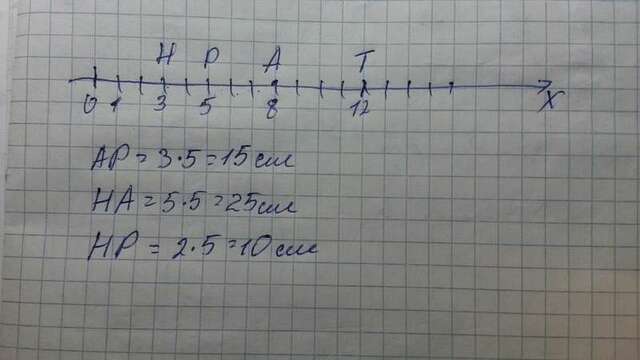 Н Р А Т
0 1 3 5 8 12 X
АР = 3·5 = 15 см
НА = 5·5 = 25 см
НР = 2·5 = 10 см